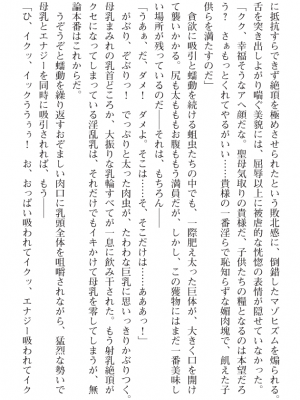 に抵抗すらできず絶頂を極めさせられたという敗北感に、倒錯したマゾヒズムを煽られる。
舌を突き出しよがり喘ぐ美貌には、屈辱以上に被虐的な恍惚の表情が隠せていなかった。
「クク、幸福そうなアヘ顔だな。聖母気取りの貴様だ、子供たちの糧となるのは本望だろ
う？　さぁもっとくれてやるがいい……貴様の一番淫らで恥知らずな媚肉塊で、飢えた子
供らを満たすのだ」
　貪欲に吸引と蠕動を続ける蛆虫たちの中でも、一際肥え太った巨体が、大きく口を開け
て襲いかかる。尻も太ももお腹ももう満員だが、しかし、この獲物にはまだ一番美味し
い場所が残っているのだ。それは、もちろん
「うああ、だ、ダメ！　ダメよ。そこは……そ、そこだけは……あああっ！」
　がぶり、ぞぶりっ！　でっぷりと太った肉虫が、たわわな巨乳に思いっきりかぶりつく。
母乳まみれの乳首どころか、大振りな乳輪すべてが一息に飲み干された。もう射乳絶頂が
クセになってしまっている淫乱乳は、それだけでもイキかけて母乳を零してしまうが、無
論本番はこれからだ。
　うぞうぞと蠕動を繰り返すおぞましい肉口に乳頭全体を咀嚼されながら、猛烈な勢いで
母乳とエナジーを同時に吸引されれば、もう――
「ひ、イクッ、イックううぅぅ！　お、おっぱい吸われてイクッ、エナジー吸われてイク